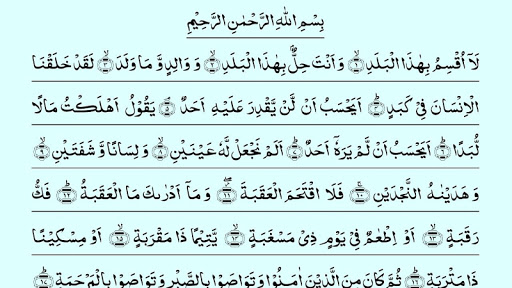 بِسْمِ اللهِ الرَّحْمٰنِ الرَّحِيْمِ
لَآ اُقْسِمُ بِهٰذَا الْبَلَدِ ۙ﴿۱﴾ وَ اَنْتَ حِلٌّۢ بِهٰذَا الْبَلَدِ ۙ﴿۲﴾ وَ وَالِدٍ وَّ مَا وَلَدَ ۙ﴿۳﴾ لَقَدْ خَلَقْنَا
الْاِنْسَانَ فِیْ كَبَدٍ ؕ﴿۴﴾ اَیَحْسَبُ اَنْ لَّنْ یَّقْدِرَ عَلَیْهِ اَحَدٌ ۘ﴿۵﴾ یَقُوْلُ اَهْلَكْتُ مَالًا
لُّبَدًا ؕ﴿۶﴾ اَیَحْسَبُ اَنْ لَّمْ یَرَهٗۤ اَحَدٌ ؕ﴿۷﴾ اَلَمْ نَجْعَلْ لَّهٗ عَیْنَیْنِ ۙ﴿۸﴾ وَ لِسَانًا وَّ شَفَتَیْنِ ۙ﴿۹﴾
وَ هَدَیْنٰهُ النَّجْدَیْنِ ۚ﴿۱۰﴾ فَلَا اقْتَحَمَ الْعَقَبَةَ ۖ﴿۱۱﴾ وَ مَاۤ اَدْرٰىكَ مَا الْعَقَبَةُ ؕ﴿۱۲﴾ فَكُّ
رَقَبَةٍ ۙ﴿۱۳﴾ اَوْ اِطْعٰمٌ فِیْ یَوْمٍ ذِیْ مَسْغَبَةٍ ۙ﴿۱۴﴾ یَّتِیْمًا ذَا مَقْرَبَةٍ ۙ﴿۱۵﴾ اَوْ مِسْكِیْنًا
ذَا مَتْرَبَةٍ ؕ﴿۱۶﴾ ثُمَّ كَانَ مِنَ الَّذِیْنَ اٰمَنُوْا وَ تَوَاصَوْا بِالصَّبْرِ وَ تَوَاصَوْا بِالْمَرْحَمَةِ ؕ﴿۱۷﴾